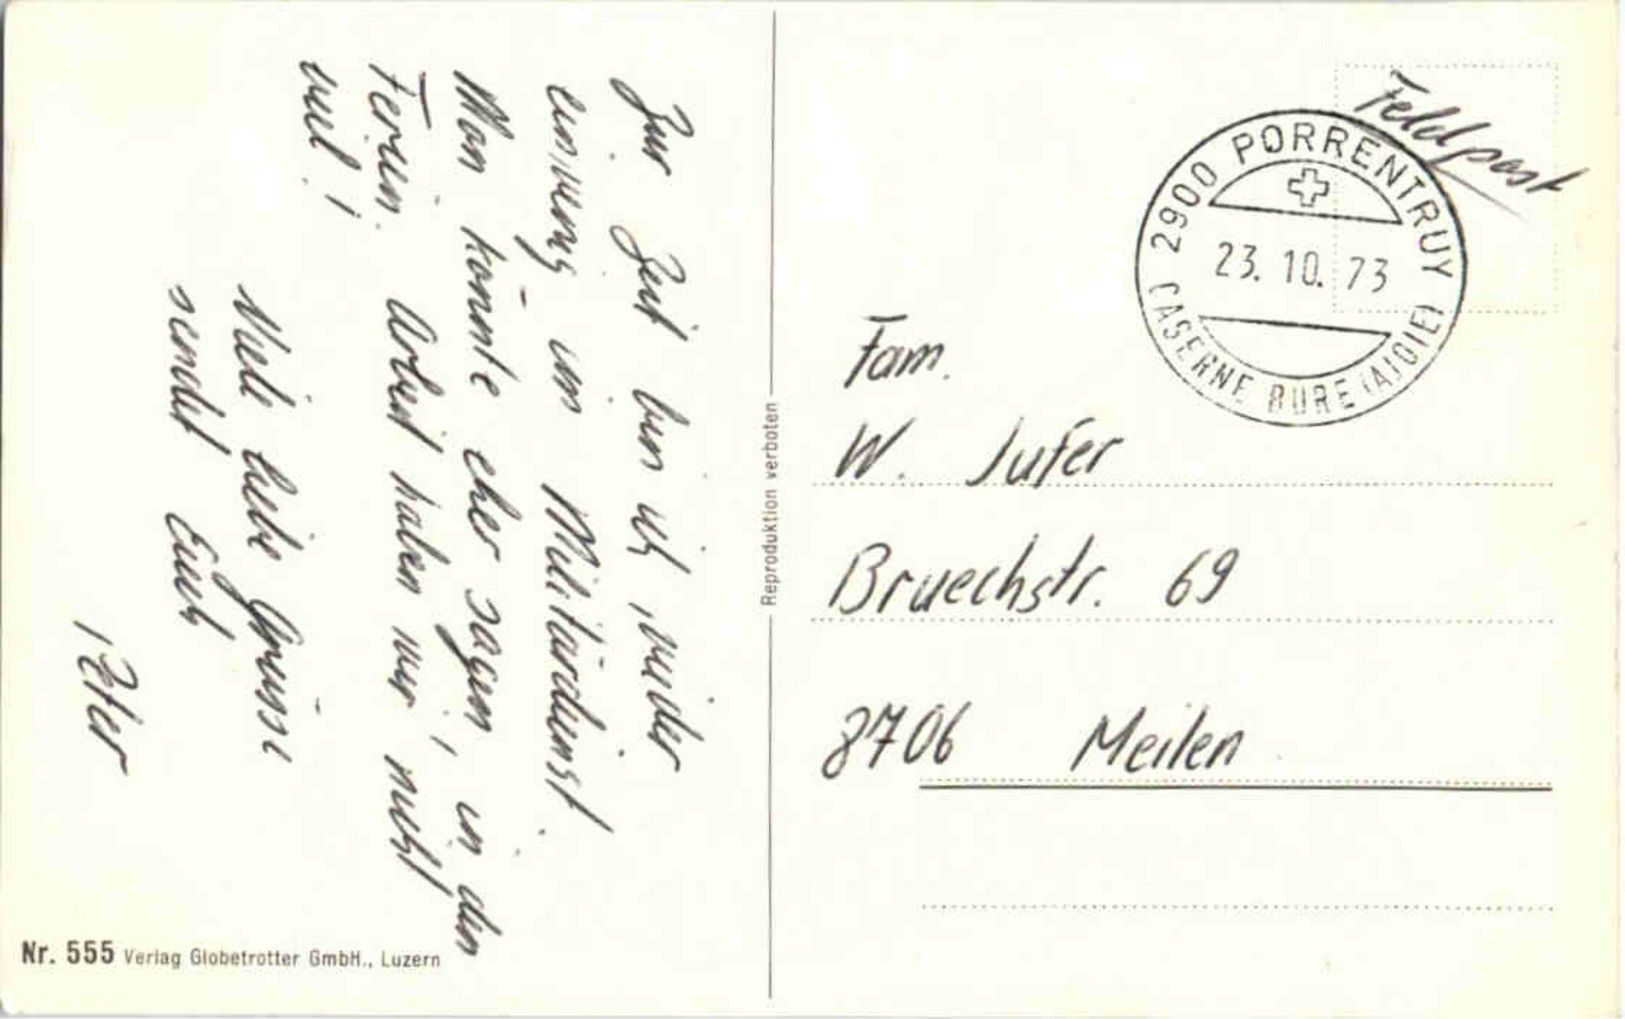 Zur Zeit bin ich wieder
einmal im Militärdienst.
Man könnte eher sagen, in den
Ferien. Arbeit haben wir nicht
viel!
Viele liebe Grüsse
sendet Euch
Peter
Reproduktion verboten
Nr. 555 Verlag Globetrotter GmbH., Luzern
Feldpost
2900 PORRENTRUY
23.10.73
CASERNE BURE (AJOIE)
Fam.
W. Jufer
Bruechstr. 69
8706 Meilen